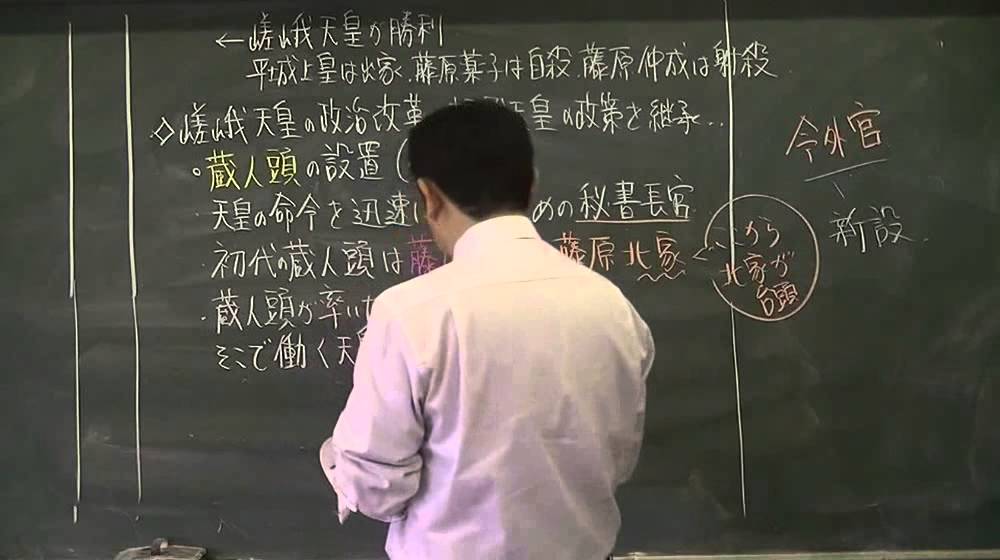 ←嵯峨天皇が勝利
平城上皇は出家、藤原薬子は自殺、藤原仲成は射殺
◇嵯峨天皇の政治改革 天皇の政策を継承‥
。蔵人頭の設置(
・天皇の命令を迅速に めの秘書長官
・初代の蔵人頭は藤 藤原北家
・蔵人頭が率い
そこで働く天
から
北家が
台頭
令外官
新設.